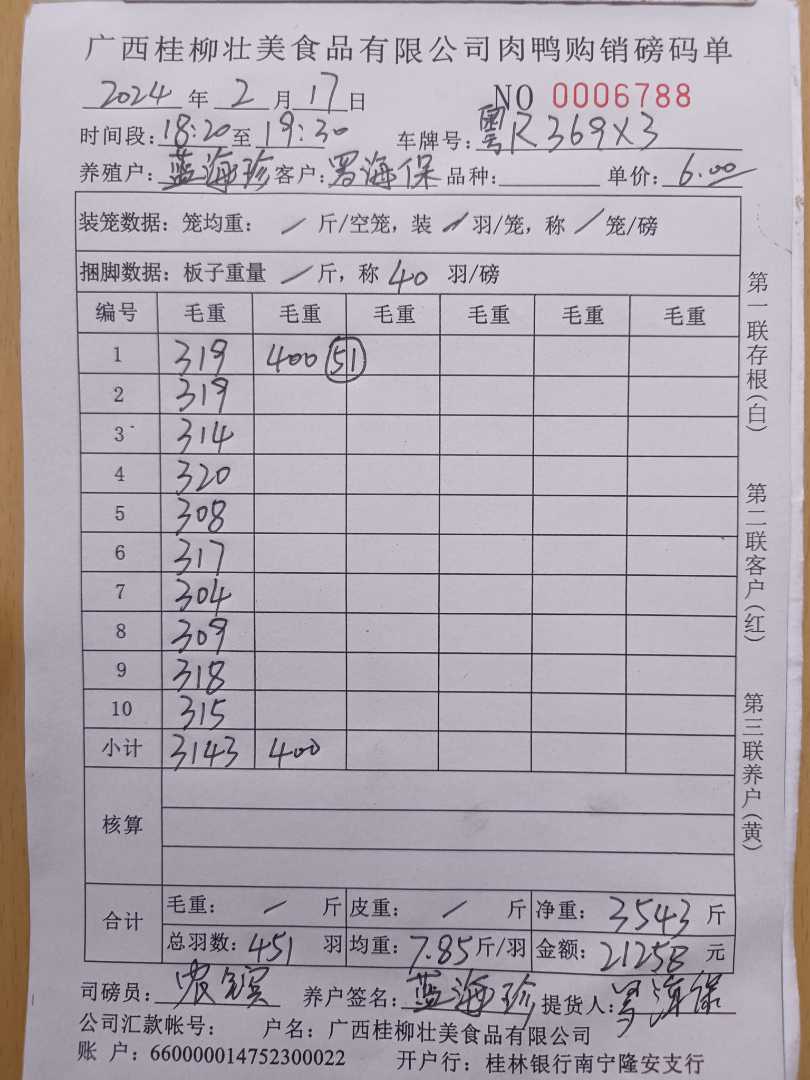 广西桂柳壮美食品有限公司肉鸭购销磅码单
2024 年 2 月 17 日 NO 0006788
时间段: 18:20 至 19:30 车牌号: 粤R369X3
养殖户: 蓝海珍 客户: 罗海保 品种: 单价: 6.00
装笼数据: 笼均重: / 斤/空笼, 装 / 羽/笼, 称 / 笼/磅
捆脚数据: 板子重量 / 斤, 称 40 羽/磅
编号 毛重 毛重 毛重 毛重 毛重 毛重
1 319 400 51
2 319
3 314
4 320
5 308
6 317
7 304
8 309
9 318
10 315
小计 3143 400
核算
合计 毛重: / 斤 皮重: / 斤 净重: 3543 斤
总羽数: 451 羽 均重: 7.85 斤/羽 金额: 21258 元
司磅员: 养户签名: 蓝海珍 提货人: 罗海保
公司汇款帐号: 户名: 广西桂柳壮美食品有限公司
账户: 660000014752300022 开户行: 桂林银行南宁隆安支行
第一联存根(白)
第二联客户(红)
第三联养户(黄)